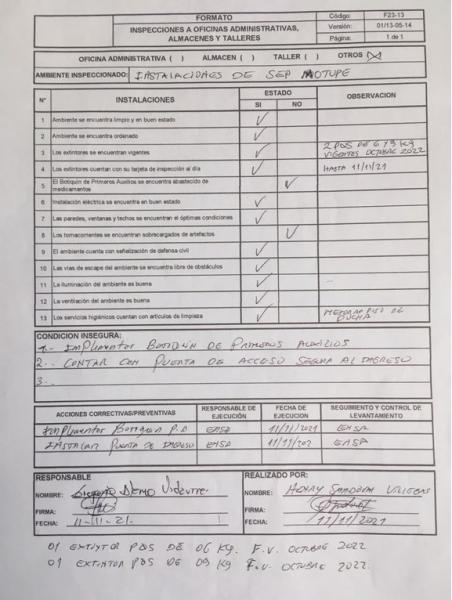 FORMATO
INSPECCIONES A OFICINAS ADMINISTRATIVAS, ALMACENES Y TALLERES
Código: F23-13
Versión: 01/13-05-14
Página: 1 de 1
OFICINA ADMINISTRATIVA ( ) ALMACEN ( ) TALLER ( ) OTROS (X)
AMBIENTE INSPECCIONADO: INSTALACIONES DE SEP MOTUPE
N° INSTALACIONES ESTADO OBSERVACION
SI NO
1 Ambiente se encuentra limpio y en buen estado ✓
2 Ambiente se encuentra ordenado ✓
3 Los extintores se encuentran vigentes ✓ 2 PQS DE 6 y 9 KG VIGENTES OCTUBRE 2022
4 Los extintores cuentan con su tarjeta de inspección al día ✓ HASTA 11/11/21
5 El Botiquín de Primeros Auxilios se encuentra abastecido de medicamentos ✓
6 Instalación eléctrica se encuentra en buen estado ✓
7 Las paredes, ventanas y techos se encuentran el óptimas condiciones ✓
8 Los tomacorrientes se encuentran sobrecargados de artefactos ✓
9 El ambiente cuenta con señalización de defensa civil ✓
10 Las vías de escape del ambiente se encuentra libre de obstáculos ✓
11 La iluminación del ambiente es buena ✓
12 La ventilación del ambiente es buena ✓
13 Los servicios higiénicos cuentan con artículos de limpieza ✓ MEJORAR PISO DE DUCHA
CONDICION INSEGURA:
1.- IMPLEMENTAR BOTIQUIN DE PRIMEROS AUXILIOS
2.- CONTAR CON PUERTA DE ACCESO SEGURA AL INGRESO
3.-
ACCIONES CORRECTIVAS/PREVENTIVAS RESPONSABLE DE EJECUCIÓN FECHA DE EJECUCION SEGUIMIENTO Y CONTROL DE LEVANTAMIENTO
Implementar Botiquin P.A ENSA 11/11/2021 ENSA
INSTALAR PUERTA DE INGRESO ENSA 11/11/202 ENSA
RESPONSABLE
NOMBRE:
FIRMA:
FECHA: 11-11-21.
REALIZADO POR:
NOMBRE: HENRY SANDOVAL VILLEGAS
FIRMA:
FECHA: 11/11/2021
01 EXTINTOR PQS DE 06 Kg. F.V. OCTUBRE 2022
01 EXTINTOR PQS DE 09 Kg F.V. OCTUBRE 2022.